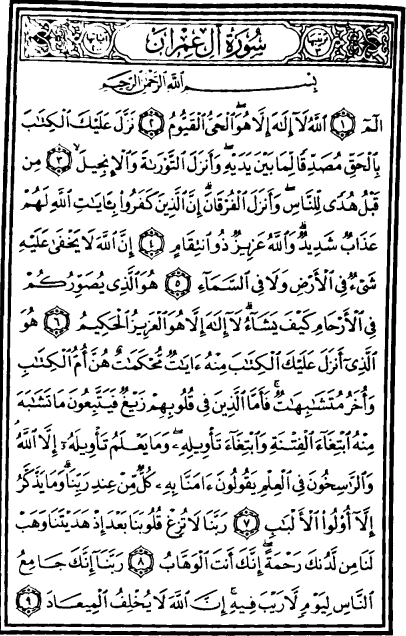 سُورَةُ آلِ عِمْرَانَ
بِسْمِ اللَّهِ الرَّحْمَٰنِ الرَّحِيمِ
الٓمٓ ١ اللَّهُ لَآ إِلَٰهَ إِلَّا هُوَ الْحَيُّ الْقَيُّومُ ٢ نَزَّلَ عَلَيْكَ الْكِتَابَ
بِالْحَقِّ مُصَدِّقًا لِمَا بَيْنَ يَدَيْهِ وَأَنزَلَ التَّوْرَىٰةَ وَالْإِنجِيلَ ٣ مِن
قَبْلُ هُدًى لِلنَّاسِ وَأَنزَلَ الْفُرْقَانَ إِنَّ الَّذِينَ كَفَرُوا بِـَٔايَاتِ اللَّهِ لَهُمْ
عَذَابٌ شَدِيدٌ وَاللَّهُ عَزِيزٌ ذُو انتِقَامٍ ٤ إِنَّ اللَّهَ لَا يَخْفَىٰ عَلَيْهِ
شَيْءٌ فِي الْأَرْضِ وَلَا فِي السَّمَآءِ ٥ هُوَ الَّذِي يُصَوِّرُكُمْ
فِي الْأَرْحَامِ كَيْفَ يَشَآءُ لَآ إِلَٰهَ إِلَّا هُوَ الْعَزِيزُ الْحَكِيمُ ٦ هُوَ
الَّذِيٓ أَنزَلَ عَلَيْكَ الْكِتَابَ مِنْهُ ءَايَاتٌ مُّحْكَمَاتٌ هُنَّ أُمُّ الْكِتَابِ
وَأُخَرُ مُتَشَابِهَاتٌ فَأَمَّا الَّذِينَ فِي قُلُوبِهِمْ زَيْغٌ فَيَتَّبِعُونَ مَا تَشَابَهَ
مِنْهُ ابْتِغَآءَ الْفِتْنَةِ وَابْتِغَآءَ تَأْوِيلِهِ وَمَا يَعْلَمُ تَأْوِيلَهُ إِلَّا اللَّهُ
وَالرَّاسِخُونَ فِي الْعِلْمِ يَقُولُونَ ءَامَنَّا بِهِ كُلٌّ مِّنْ عِندِ رَبِّنَا وَمَا يَذَّكَّرُ
إِلَّآ أُوْلُوا الْأَلْبَابِ ٧ رَبَّنَا لَا تُزِغْ قُلُوبَنَا بَعْدَ إِذْ هَدَيْتَنَا وَهَبْ
لَنَا مِن لَّدُنكَ رَحْمَةً إِنَّكَ أَنتَ الْوَهَّابُ ٨ رَبَّنَآ إِنَّكَ جَامِعُ
النَّاسِ لِيَوْمٍ لَّا رَيْبَ فِيهِ إِنَّ اللَّهَ لَا يُخْلِفُ الْمِيعَادَ ٩